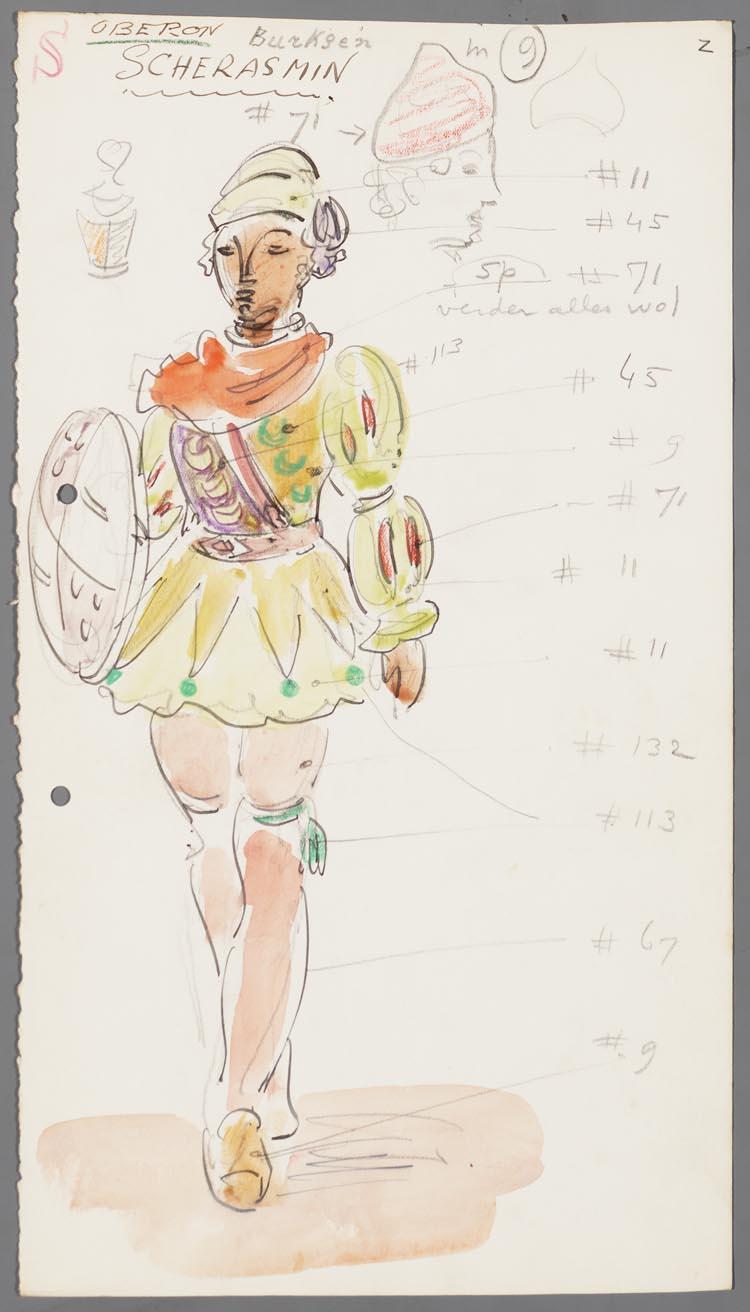 S
OBERON
SCHERASMIN
m 9
z
# 71
# 11
# 45
5p # 71
verder alles wol
# 113
# 45
# 9
# 71
# 11
# 11
# 132
# 113
# 67
# 9